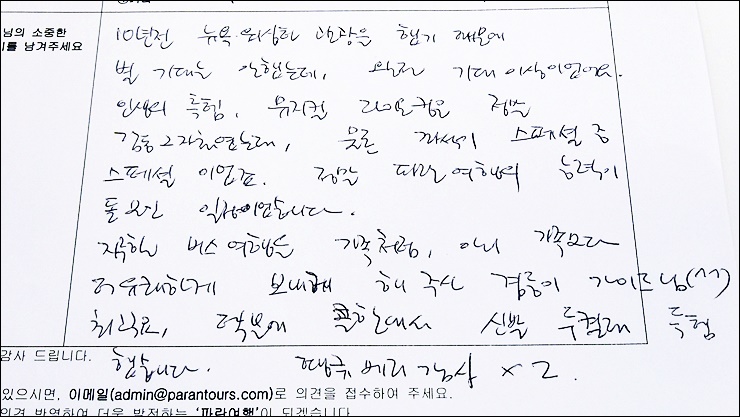 님의 소중한
를 남겨주세요
10년전 뉴욕·워싱턴 관광을 했기 때문에
별 기대는 안했는데, 완전 기대 이상이었어요.
인생의 특험, 뮤지컬 라이온킹은 정말
감동 그자체였는데, 물론 좌석이 스페셜 중
스페셜 이었고. 정말 파란여행의 능력이
돋보인 일정이었습니다.
지루한 버스 여행을 가족처럼, 아니 가족보다
더 유쾌하게 보내게 해 주신 경륜이 가이드님(^^)
최고고, 덕분에 콜한대서 신발 두켤레 득험
했습니다.
감사 드립니다.
땡큐 베리 감사 x 2.
있으시면, 이메일(admin@parantours.com)로 의견을 접수하여 주세요.
의견 반영하여 더욱 발전하는 '파란여행'이 되겠습니다